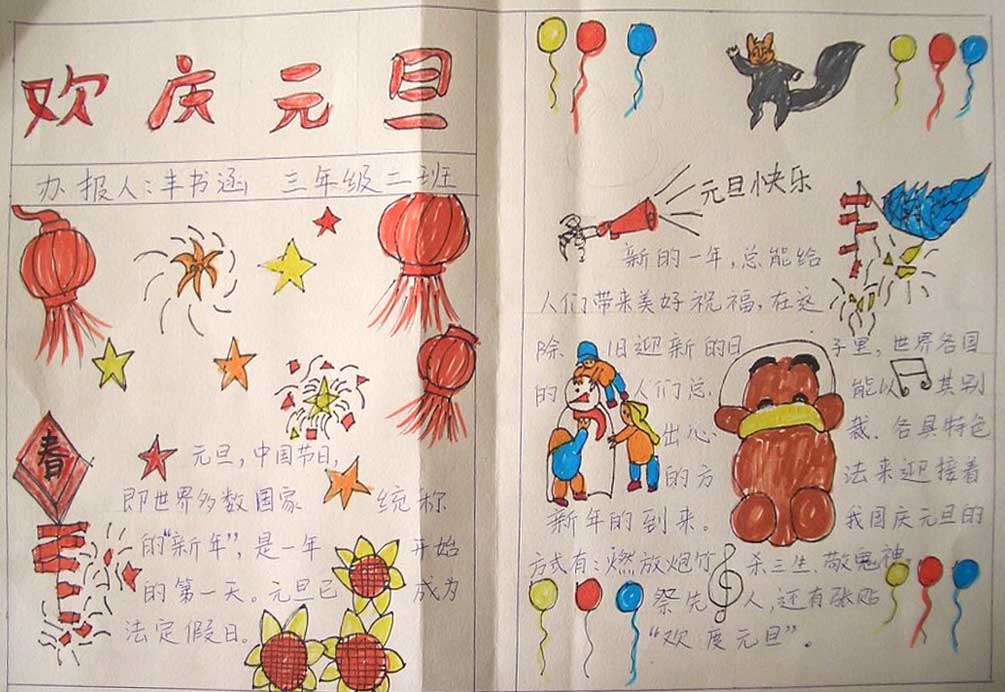 欢庆元旦
办报人：丰书涵 三年级二班
春
元旦，中国节日，
即世界多数国家统称
的“新年”，是一年开始
的第一天。元旦已成为
法定假日。
元旦快乐
新的一年，总能给
人们带来美好祝福，在这
除旧迎新的日子里，世界各国
的人们总能以其别
出心裁、各具特色
的方法来迎接着
新年的到来。我国庆元旦的
方式有：燃放炮竹、杀三生、敬鬼神、
祭先人，还有张贴
“欢度元旦”。